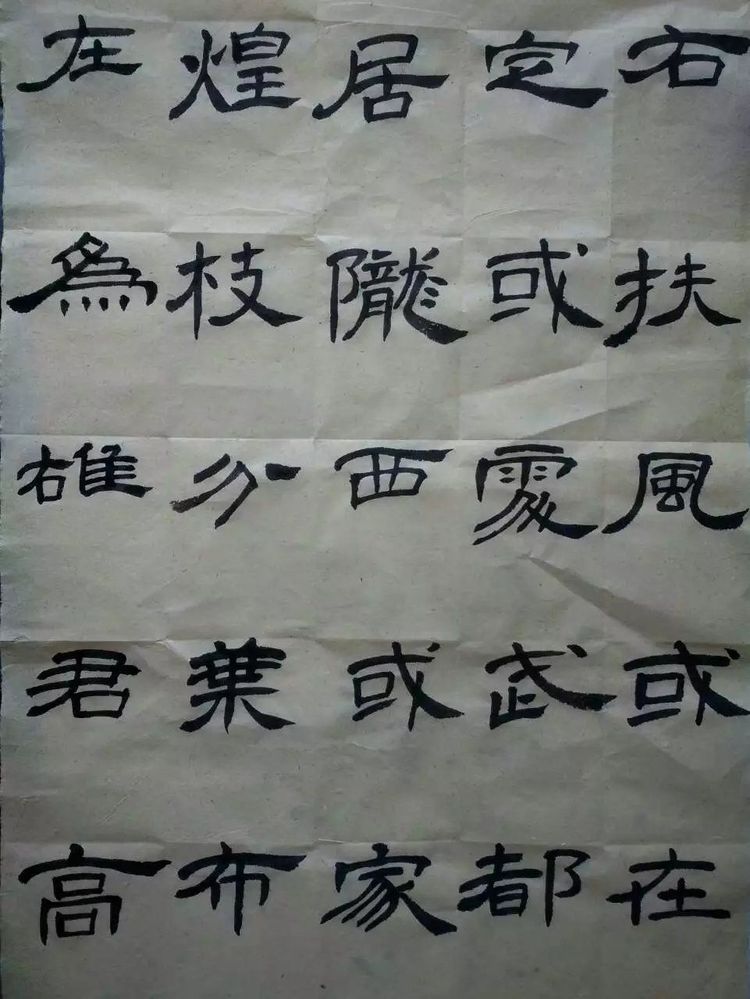 右扶風或在
定或處武都
居隴西或家
煌枝分葉布
在爲雄君高